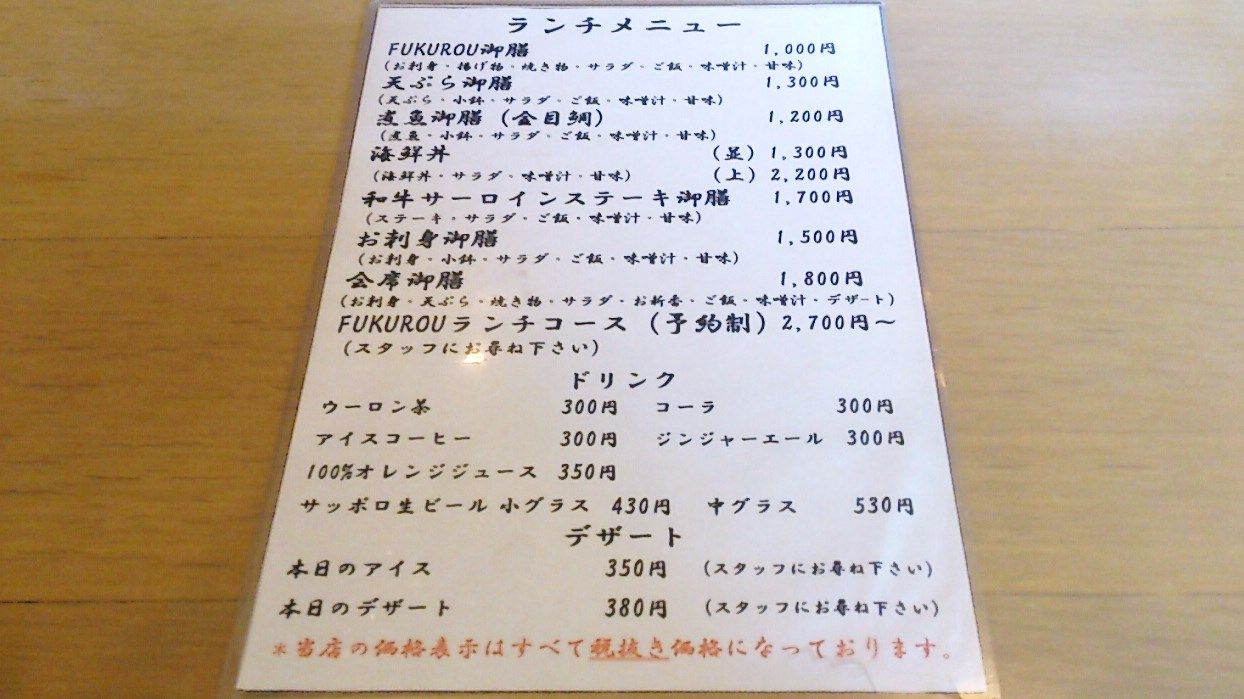 ランチメニュー
FUKUROU御膳 1,000円
(お刺身・揚げ物・焼き物・サラダ・ご飯・味噌汁・甘味)
天ぷら御膳 1,300円
(天ぷら・小鉢・サラダ・ご飯・味噌汁・甘味)
煮魚御膳(金目鯛) 1,200円
(煮魚・小鉢・サラダ・ご飯・味噌汁・甘味)
海鮮丼 (並) 1,300円
(海鮮丼・サラダ・味噌汁・甘味) (上) 2,200円
和牛サーロインステーキ御膳 1,700円
(ステーキ・サラダ・ご飯・味噌汁・甘味)
お刺身御膳 1,500円
(お刺身・小鉢・サラダ・ご飯・味噌汁・甘味)
会席御膳 1,800円
(お刺身・天ぷら・焼き物・サラダ・お新香・ご飯・味噌汁・デザート)
FUKUROUランチコース(予約制) 2,700円～
(スタッフにお尋ね下さい)
ドリンク
ウーロン茶 300円 コーラ 300円
アイスコーヒー 300円 ジンジャーエール 300円
100%オレンジジュース 350円
サッポロ生ビール 小グラス 430円 中グラス 530円
デザート
本日のアイス 350円 (スタッフにお尋ね下さい)
本日のデザート 380円 (スタッフにお尋ね下さい)
※当店の価格表示はすべて税抜き価格になっております。